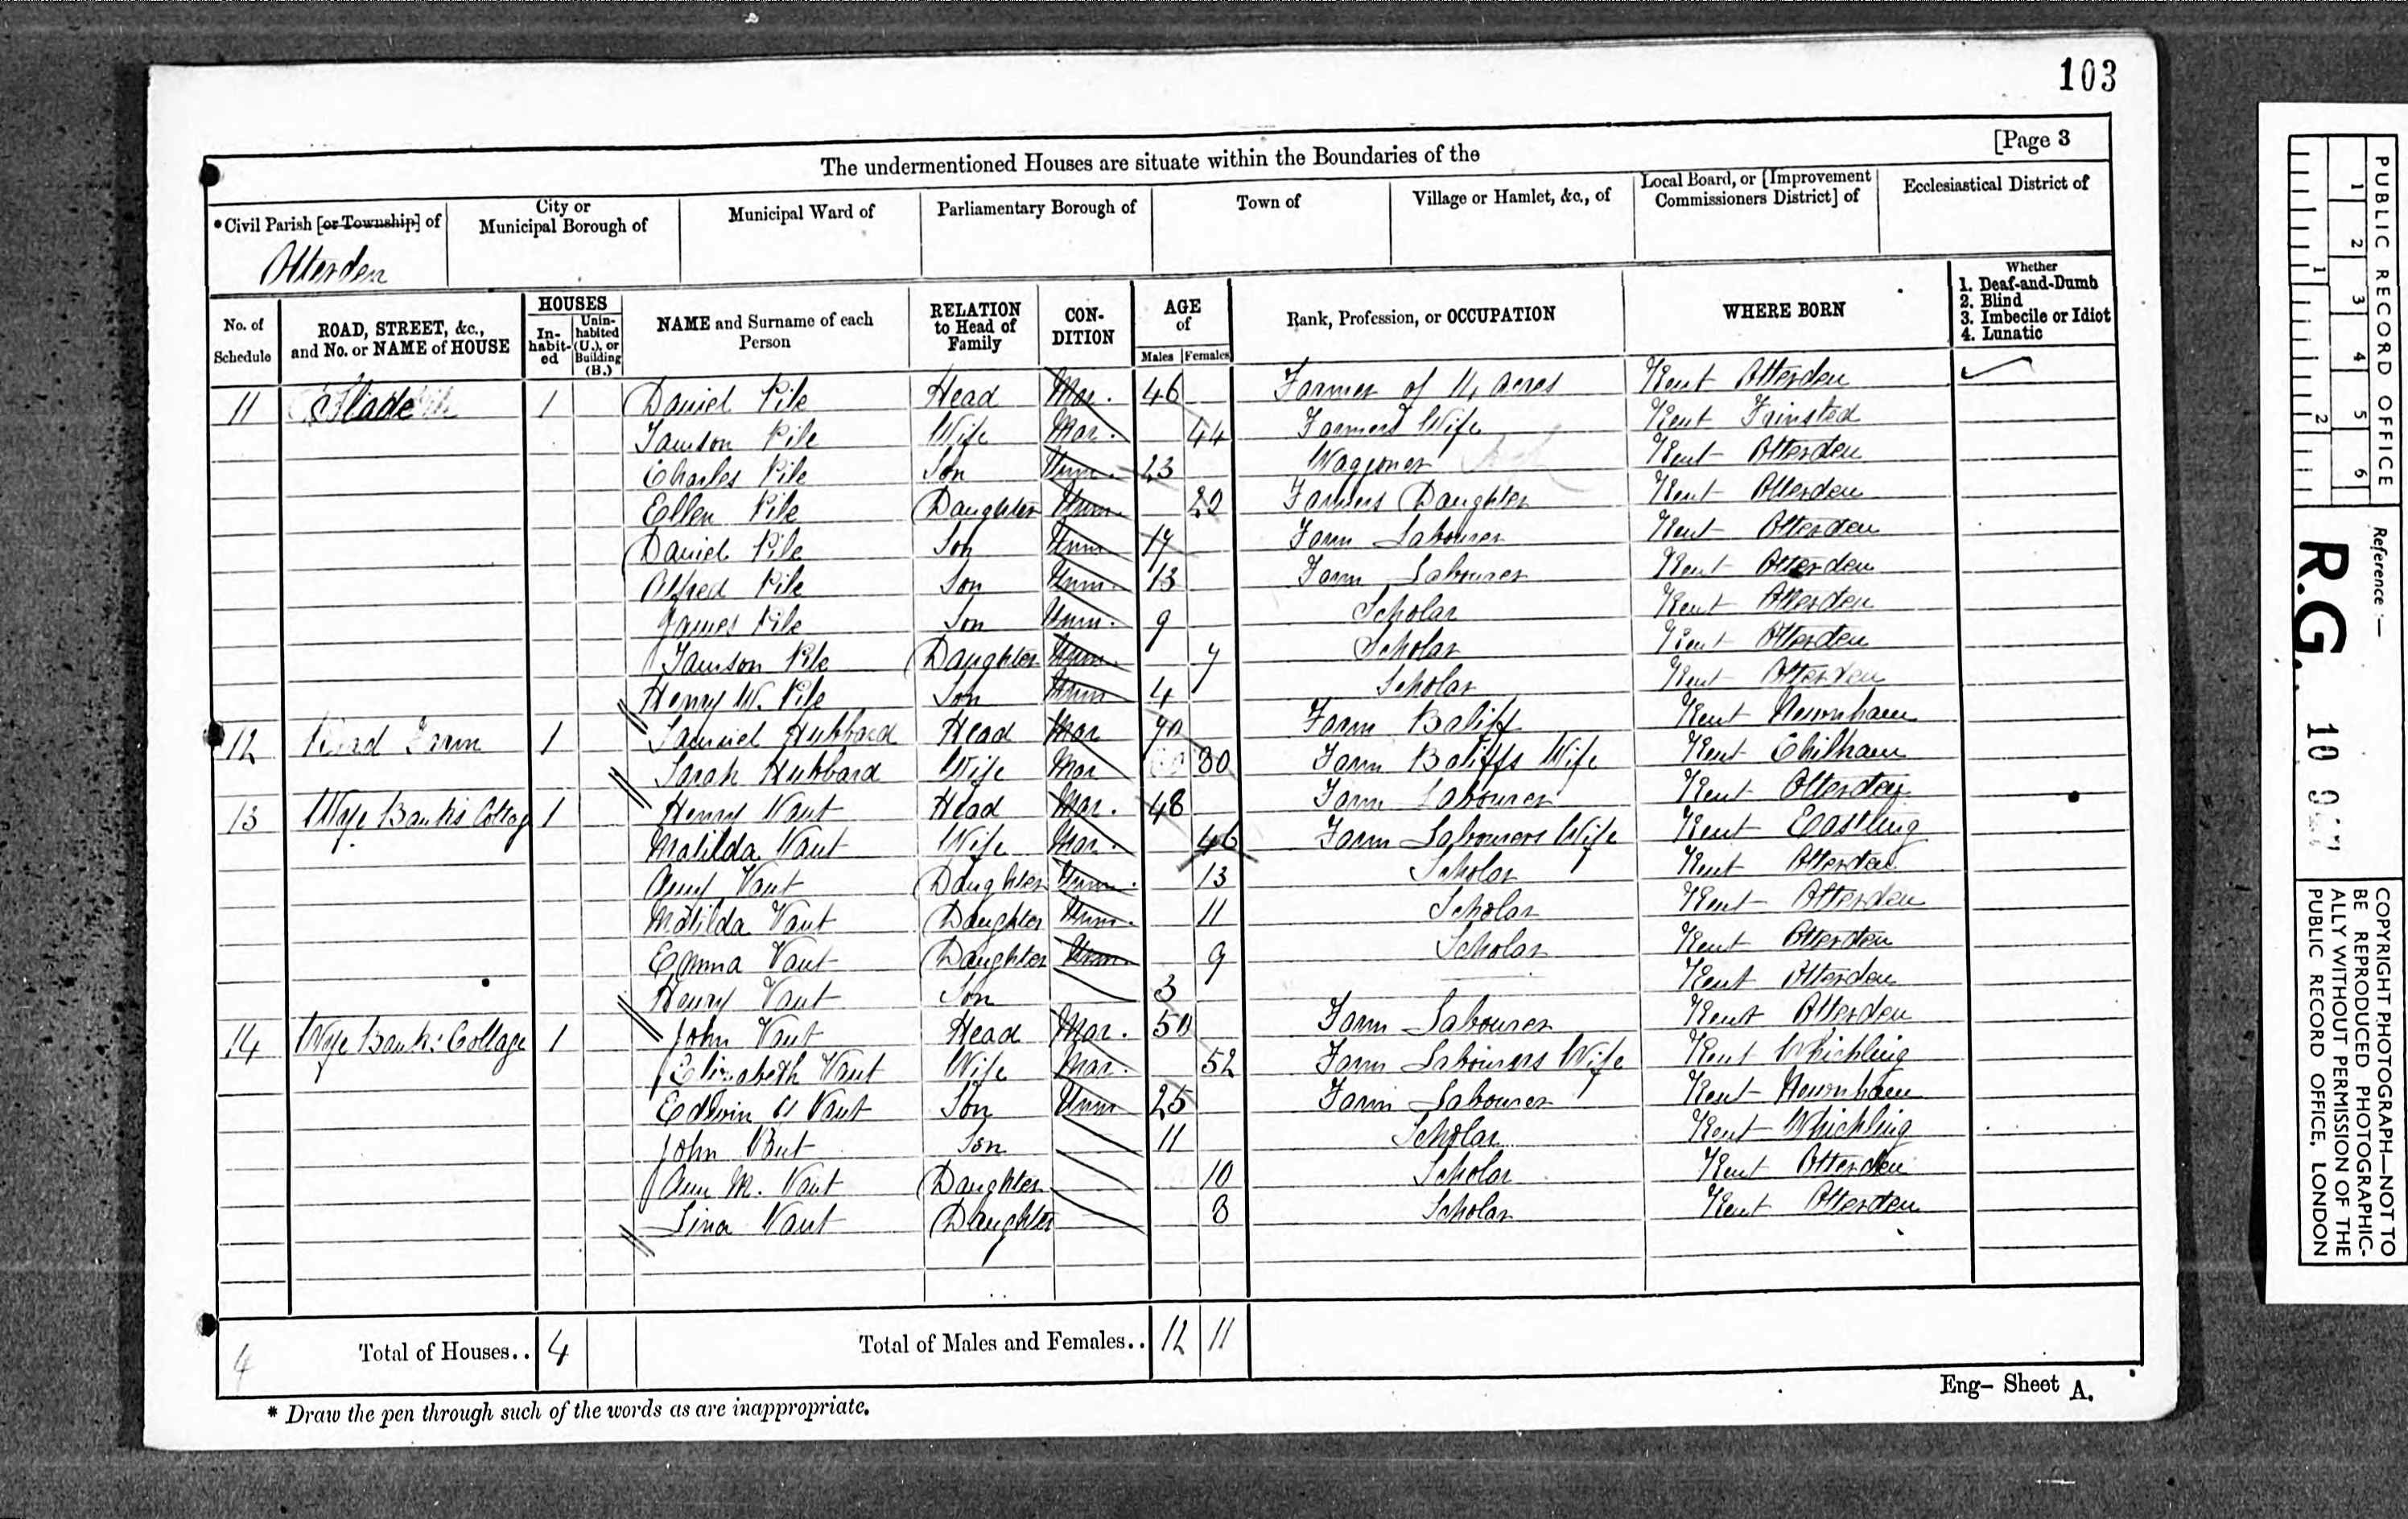 103
[Page 3
The undermentioned Houses are situate within the Boundaries of the
*Civil Parish [or Township] of
City or Municipal Borough of
Municipal Ward of
Parliamentary Borough of
Town of
Village or Hamlet, &c., of
Local Board, or [Improvement Commissioners District] of
Ecclesiastical District of
Otterden
No. of Schedule
ROAD, STREET, &c., and No. or NAME of HOUSE
HOUSES
In-habit-ed
Unin-habited (U.), or Building (B.)
NAME and Surname of each Person
RELATION to Head of Family
CON-DITION
AGE of
Males
Females
Rank, Profession, or OCCUPATION
WHERE BORN
Whether
1. Deaf-and-Dumb
2. Blind
3. Imbecile or Idiot
4. Lunatic
11 Slade 1 Daniel Pile Head Mar. 46 Farmer of 14 acres Kent Otterden
Tamson Pile Wife Mar. 44 Farmers Wife Kent Frinsted
Charles Pile Son Unm. 23 Waggoner Kent Otterden
Ellen Pile Daughter Unm. 22 Farmers Daughter Kent Otterden
Daniel Pile Son Unm 17 Farm Labourer Kent Otterden
Alfred Pile Son Unm. 13 Farm Labourer Kent Otterden
James Pile Son Unm. 9 Scholar Kent Otterden
Tamson Pile Daughter Unm. 7 Scholar Kent Otterden
Henry W. Pile Son Unm 4 Scholar Kent Otterden
12 Farm 1 Samuel Hubbard Head Mar 70 Farm Baliff Kent Newnham
Sarah Hubbard Wife Mar 80 Farm Baliffs Wife Kent Chilham
13 Wye Banks Cottag 1 Henry Vant Head Mar. 48 Farm Labourer Kent Otterden
Matilda Vant Wife Mar. 46 Farm Labourers Wife Kent Eastling
Amy Vant Daughter Unm. 13 Scholar Kent Otterden
Matilda Vant Daughter Unm. 11 Scholar Kent Otterden
Emma Vant Daughter Unm. 9 Scholar Kent Otterden
Henry Vant Son 3 Kent Otterden
14 Wye Banks Cottage 1 John Vant Head Mar. Farm Labourer Kent Otterden
Elizabeth Vant Wife Mar. 52 Farm Labourers Wife Kent Whichling
Edwin Vant Son Unm 25 Farm Labourer Kent Newnham
John Vant Son 11 Scholar Kent Whichling
Ann M. Vant Daughter 10 Scholar Kent Otterden
Lina Vant Daughter 8 Scholar Kent Otterden
4 Total of Houses.. 4 Total of Males and Females.. 12 11
Eng- Sheet A.
* Draw the pen through such of the words as are inappropriate.
PUBLIC RECORD OFFICE
1 2 3 4 5 6
1 2
Reference :—
R.G. 10
COPYRIGHT PHOTOGRAPH—NOT TO
BE REPRODUCED PHOTOGRAPHIC-
ALLY WITHOUT PERMISSION OF THE
PUBLIC RECORD OFFICE, LONDON